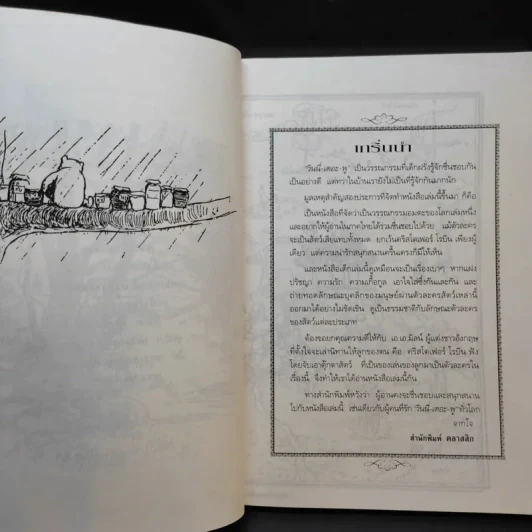 เกริ่นนำ
'วินนี-เดอะ-พู' เป็นวรรณกรรมที่เด็กฝรั่งรู้จักชื่นชอบกัน
เป็นอย่างดี แต่ทว่าในบ้านเรายังไม่เป็นที่รู้จักกันมากนัก
มูลเหตุสำคัญสองประการที่จัดทำหนังสือเล่มนี้ขึ้นมา ก็คือ
เป็นหนังสือที่จัดว่าเป็นวรรณกรรมอมตะของโลกเล่มหนึ่ง
และอยากให้ผู้อ่านในภาคไทยได้ร่วมชื่นชอบไปด้วย แม้ตัวละคร
จะเป็นสัตว์เสียแทบทั้งหมด ยกเว้นคริสโตเฟอร์ โรบิน เพียงผู้
เดียว แต่ความน่ารักสนุกสนานครื้นเครงก็มีให้เห็น
และหนังสือเด็กเล่มนี้ดูเหมือนจะเป็นเรื่องเบาๆ หากแฝง
ปรัชญา ความรัก ความเกื้อกูล เอาใจใส่ซึ่งกันและกัน และ
ถ่ายทอดลักษณะบุคลิกของมนุษย์ผ่านตัวละครสัตว์เหล่านี้
ออกมาได้อย่างไม่ขัดเขิน ดูเป็นธรรมชาติกับลักษณะตัวละคร
ของสัตว์แต่ละประเภท
ต้องขอยกคุณความดีให้กับ เอ.เอ.มิลน์ ผู้แต่งชาวอังกฤษ
ที่ตั้งใจจะเล่านิทานให้ลูกของตน คือ คริสโตเฟอร์ โรบิน ฟัง
โดยจับเอาตุ๊กตาสัตว์ ที่เป็นของเล่นของลูกมาเป็นตัวละครใน
เรื่องนี้ จึงทำให้เราได้อ่านหนังสือเล่มนี้กัน
ทางสำนักพิมพ์หวังว่า ผู้อ่านคงจะชื่นชอบและสนุกสนาน
ไปกับหนังสือเล่มนี้ เช่นเดียวกับผู้คนที่รัก 'วินนี-เดอะ-พู' ทั่วโลก
จากใจ
สำนักพิมพ์ คลาสสิก